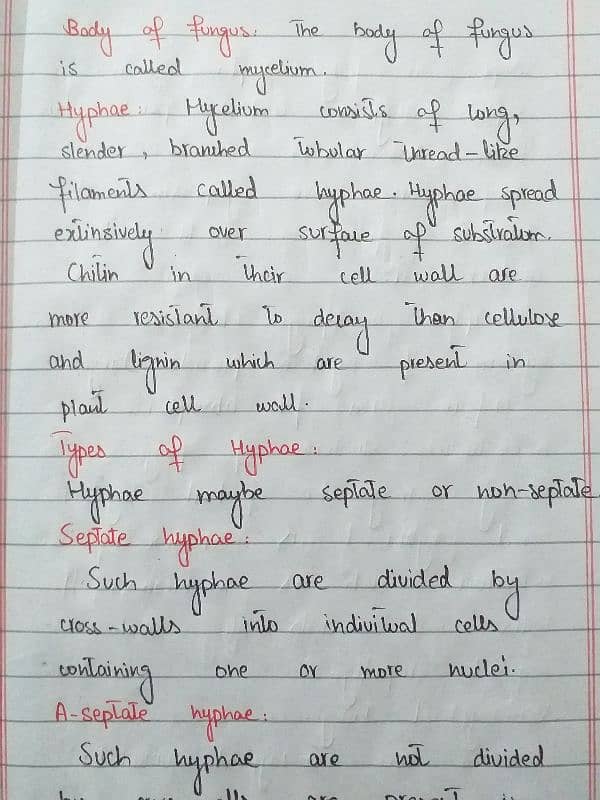 Body of fungus: The body of fungus
is called mycelium.
Hyphae: Mycelium consists of long,
slender, branched tubular thread-like
filaments called hyphae. Hyphae spread
extinsively over surface of substratum.
Chitin in their cell wall are
more resistant to decay than cellulose
and lignin which are present in
plant cell wall.
Types of Hyphae:
Hyphae maybe septate or non-septate
Septate hyphae:
Such hyphae are divided by
cross-walls into individual cells
containing one or more nuclei.
A-septate hyphae:
Such hyphae are not divided